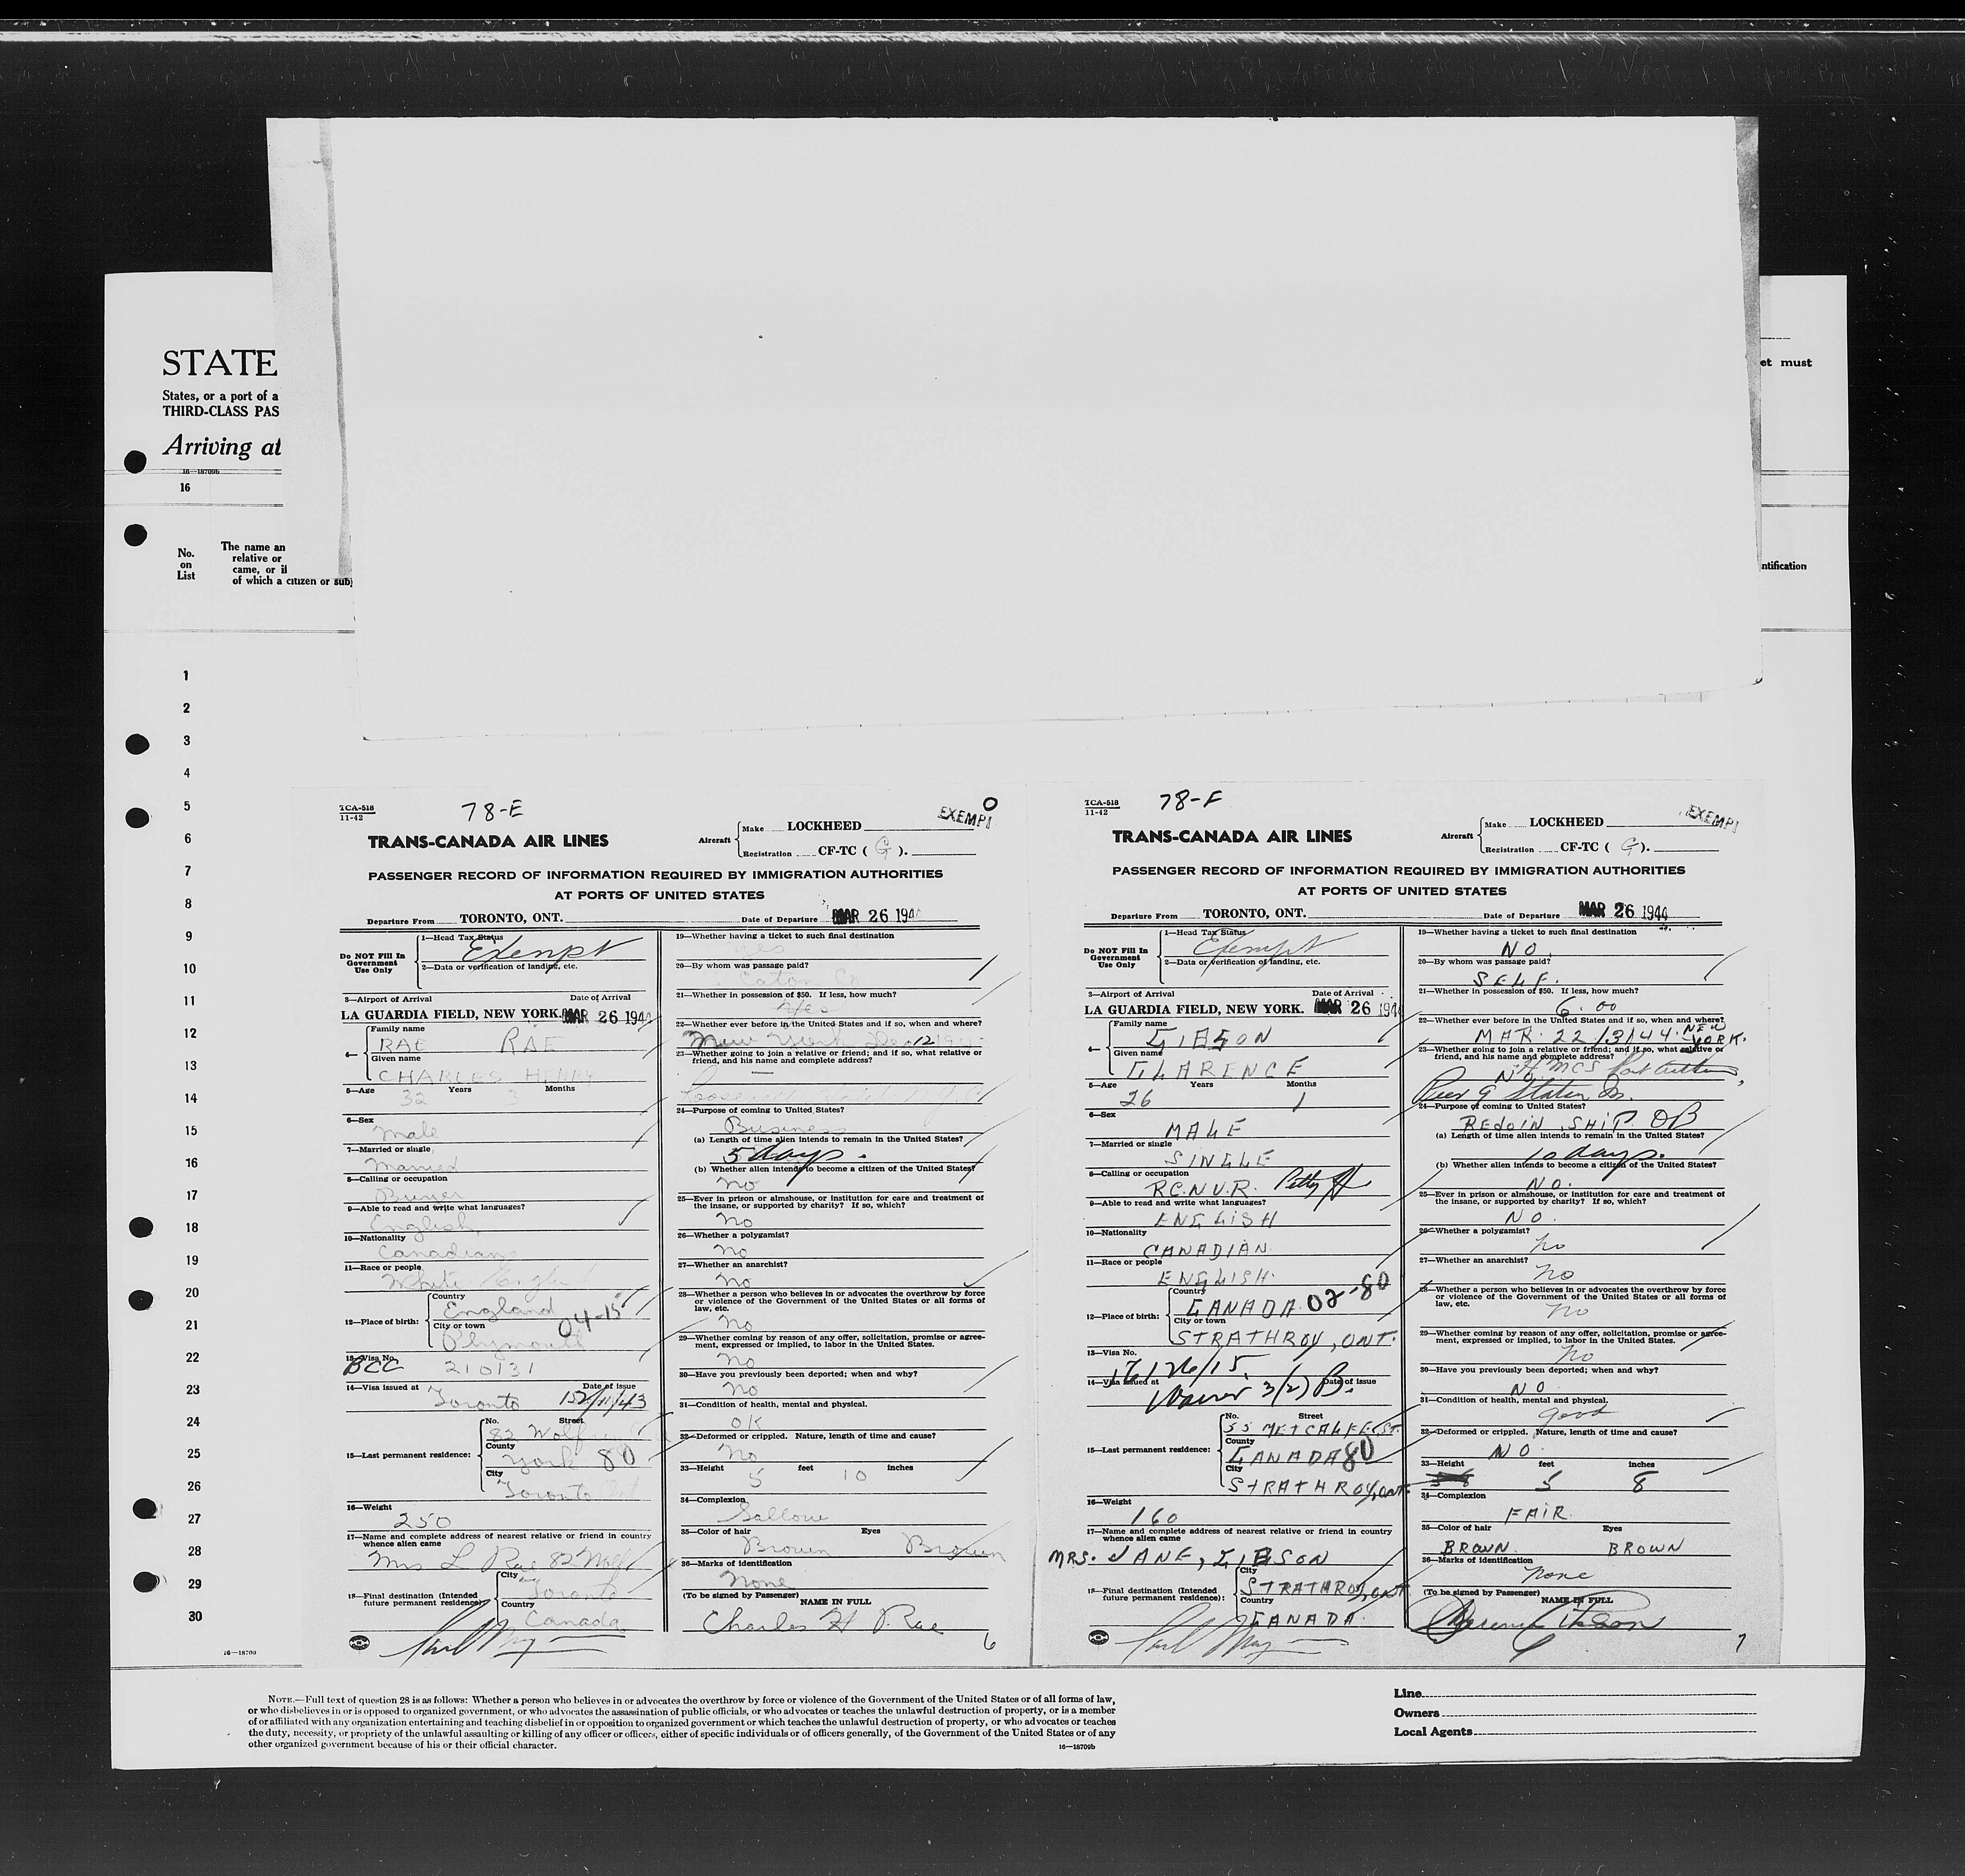 STATE
States, or a port of a
THIRD-CLASS PAS
Arriving at
16—18709b
16
et must
No. on List
The name an
relative or
came, or if
of which a citizen or subj
ntification
1
2
3
4
5
6
7
8
9
10
11
12
13
14
15
16
17
18
19
20
21
22
23
24
25
26
27
28
29
30
16—18709
TCA-518
11-42
78-E
EXEMPT
TRANS-CANADA AIR LINES
Aircraft
Make LOCKHEED
Registration CF-TC ( G ).
PASSENGER RECORD OF INFORMATION REQUIRED BY IMMIGRATION AUTHORITIES
AT PORTS OF UNITED STATES
Departure From TORONTO, ONT. Date of Departure MAR 26 1944
Do NOT Fill In
Government
Use Only
1—Head Tax Status
Exempt
2—Data or verification of landing, etc.
3—Airport of Arrival Date of Arrival
LA GUARDIA FIELD, NEW YORK. MAR 26 1944
4—
Family name
RAE RAE
Given name
CHARLES HENRY
5—Age Years Months
32 3
6—Sex
Male
7—Married or single
Married
8—Calling or occupation
Buyer
9—Able to read and write what languages?
English
10—Nationality
Canadian
11—Race or people
White English
12—Place of birth:
Country
England
04-15
City or town
Plymouth
13—Visa No.
BCC 210131
14—Visa issued at Date of issue
Toronto 152/11/43
15—Last permanent residence:
No. Street
82
County
York 80
City
Toronto
16—Weight
250
17—Name and complete address of nearest relative or friend in country
whence alien came
Mrs L Rae 82
18—Final destination (Intended
future permanent residence)
City
Toronto
Country
Canada
19—Whether having a ticket to such final destination
yes
20—By whom was passage paid?
Eaton Co
21—Whether in possession of $50. If less, how much?
Yes
22—Whether ever before in the United States and if so, when and where?
New York Dec 12
23—Whether going to join a relative or friend; and if so, what relative or
friend, and his name and complete address?
24—Purpose of coming to United States?
Business
(a) Length of time alien intends to remain in the United States?
5 days.
(b) Whether alien intends to become a citizen of the United States?
No
25—Ever in prison or almshouse, or institution for care and treatment of
the insane, or supported by charity? If so, which?
No
26—Whether a polygamist?
No
27—Whether an anarchist?
No
28—Whether a person who believes in or advocates the overthrow by force
or violence of the Government of the United States or all forms of
law, etc.
No
29—Whether coming by reason of any offer, solicitation, promise or agree-
ment, expressed or implied, to labor in the United States.
No
30—Have you previously been deported; when and why?
No
31—Condition of health, mental and physical.
OK
32—Deformed or crippled. Nature, length of time and cause?
No
33—Height feet inches
5 10
34—Complexion
Sallow
35—Color of hair Eyes
Brown Brown
36—Marks of identification
None
(To be signed by Passenger) NAME IN FULL
Charles H Rae
6
TCA-518
11-42
78-F
EXEMPT
TRANS-CANADA AIR LINES
Aircraft
Make LOCKHEED
Registration CF-TC ( G ).
PASSENGER RECORD OF INFORMATION REQUIRED BY IMMIGRATION AUTHORITIES
AT PORTS OF UNITED STATES
Departure From TORONTO, ONT. Date of Departure MAR 26 1944
Do NOT Fill In
Government
Use Only
1—Head Tax Status
Exempt
2—Data or verification of landing, etc.
3—Airport of Arrival Date of Arrival
LA GUARDIA FIELD, NEW YORK. MAR 26 1944
4—
Family name
GIBSON
Given name
CLARENCE
5—Age Years Months
26 1
6—Sex
MALE
7—Married or single
SINGLE
8—Calling or occupation
R.C.N.V.R. Petty
9—Able to read and write what languages?
ENGLISH
10—Nationality
CANADIAN.
11—Race or people
ENGLISH.
12—Place of birth:
Country
CANADA. 02-80
City or town
STRATHROY, ONT.
13—Visa No.
176126/15.
14—Visa issued at Date of issue
Waiver 3/27 B.
15—Last permanent residence:
No. Street
55 METCALFE ST.
County
CANADA 80
City
STRATHROY, ONT.
16—Weight
160
17—Name and complete address of nearest relative or friend in country
whence alien came
MRS. JANE, GIBSON
18—Final destination (Intended
future permanent residence):
City
STRATHROY, ONT
Country
CANADA.
19—Whether having a ticket to such final destination
NO.
20—By whom was passage paid?
SELF.
21—Whether in possession of $50. If less, how much?
6.00
22—Whether ever before in the United States and if so, when and where?
MAR. 22/3/44. NEW YORK.
23—Whether going to join a relative or friend; and if so, what relative or
friend, and his name and complete address?
NO. HMCS Port Arthur,
Pier 9 Staten Is.
24—Purpose of coming to United States?
REJOIN SHIP. OB
(a) Length of time alien intends to remain in the United States?
10 days.
(b) Whether alien intends to become a citizen of the United States?
NO.
25—Ever in prison or almshouse, or institution for care and treatment of
the insane, or supported by charity? If so, which?
NO.
26—Whether a polygamist?
No
27—Whether an anarchist?
No
28—Whether a person who believes in or advocates the overthrow by force
or violence of the Government of the United States or all forms of
law, etc.
No
29—Whether coming by reason of any offer, solicitation, promise or agree-
ment, expressed or implied, to labor in the United States.
No
30—Have you previously been deported; when and why?
NO.
31—Condition of health, mental and physical.
good
32—Deformed or crippled. Nature, length of time and cause?
NO.
33—Height feet inches
5 8
34—Complexion
FAIR.
35—Color of hair Eyes
BROWN. BROWN
36—Marks of identification
None
(To be signed by Passenger) NAME IN FULL
Clarence Gibson
7
NOTE.—Full text of question 28 is as follows: Whether a person who believes in or advocates the overthrow by force or violence of the Government of the United States or of all forms of law,
or who disbelieves in or is opposed to organized government, or who advocates the assassination of public officials, or who advocates or teaches the unlawful destruction of property, or is a member
of or affiliated with any organization entertaining and teaching disbelief in or opposition to organized government or which teaches the unlawful destruction of property, or who advocates or teaches
the duty, necessity, or propriety of the unlawful assaulting or killing of any officer or officers, either of specific individuals or of officers generally, of the Government of the United States or of any
other organized government because of his or their official character.
16—18709b
Line
Owners
Local Agents